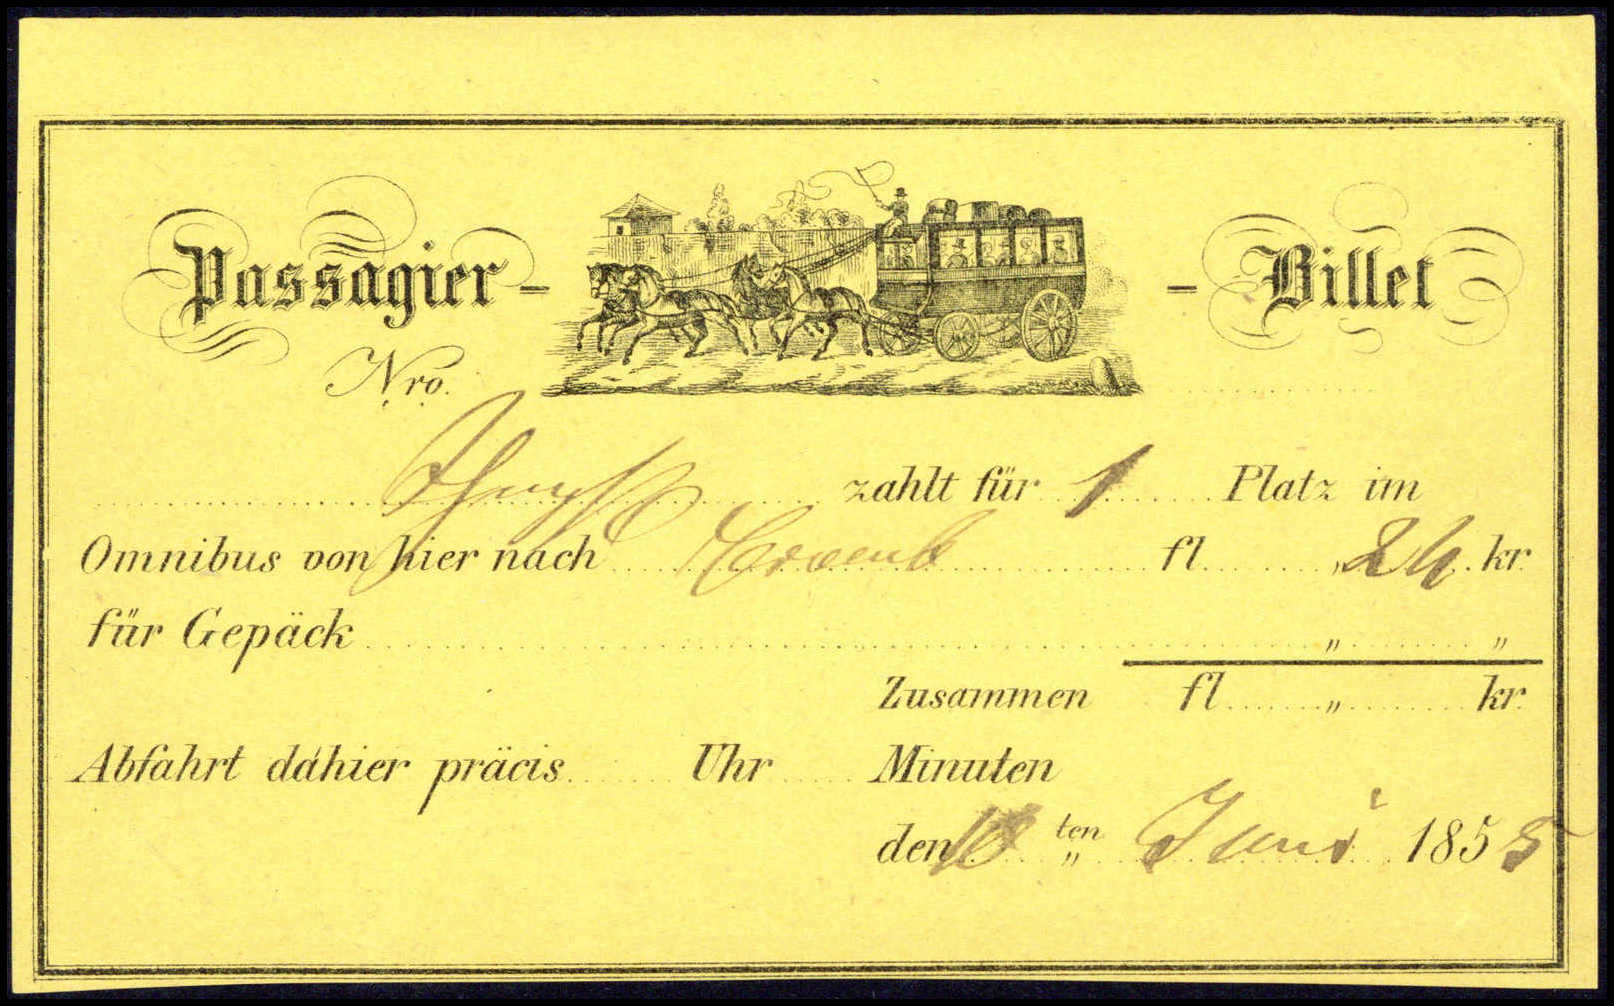 Passagier - - Billet
Nro.
zahlt für 1 Platz im
Omnibus von hier nach fl „ 24 kr.
für Gepäck „ „
Zusammen fl „ kr.
Abfahrt dahier präcis Uhr Minuten
den 10 ten „ Juni 1855